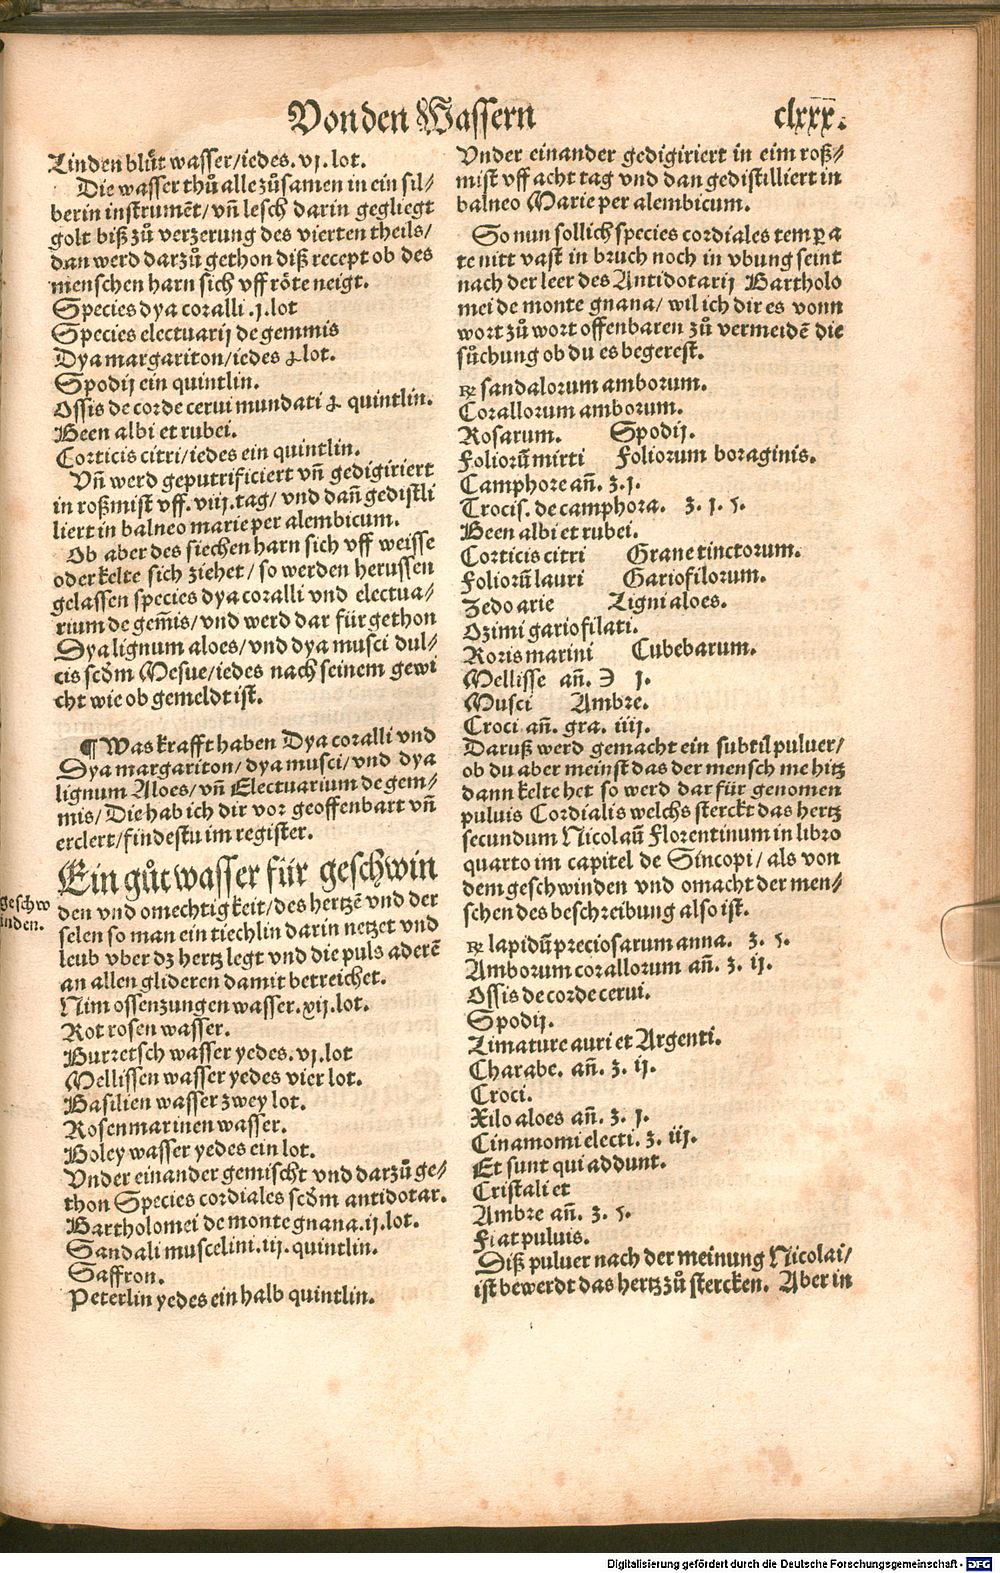 Von den Wassern
clxxx.
Linden blůt wasser/iedes.vj.lot.
Die wasser thů alle zůsamen in ein sil⸗
berin instrumēt/vñ lesch darin gegliegt
golt biß zů verzerung des vierten theils/
dan werd darzů gethon diß recept ob des
menschen harn sich vff röte neigt.
Species dya coralli .j.lot
Species electuarij de gemmis
Dya margariton/iedes ʒ lot.
Spodij ein quintlin.
Ossis de corde cerui mundati ʒ quintlin.
Been albi et rubei.
Corticis citri/iedes ein quintlin.
Vñ werd geputrificiert vñ gedigiriert
in roßmist vff.viij.tag/vnd dañ gedistli
liert in balneo marie per alembicum.
Ob aber des siechen harn sich vff weisse
oder kelte sich ziehet/so werden herussen
gelassen species dya coralli vnd electua⸗
rium de gem̄is/vnd werd dar für gethon
Dya lignum aloes/vnd dya musci dul⸗
cis scd̄m Mesue/iedes nach seinem gewi
cht wie ob gemeldt ist.
¶ Was krafft haben Dya coralli vnd
Dya margariton/dya musci/vnd dya
lignum Aloes/vñ Electuarium de gem⸗
mis/Die hab ich dir vor geoffenbart vñ
erclert/findestu im register.
Ein gůt wasser für geschwin
geschw
inden.
den vnd omechtigkeit/des hertzē vnd der
selen so man ein tiechlin darin netzet vnd
leub vber dz hertz legt vnd die puls aderē
an allen glideren damit betreichet.
Nim ossenzungen wasser.xij.lot.
Rot rosen wasser.
Burretsch wasser yedes.vj.lot
Mellissen wasser yedes vier lot.
Basilien wasser zwey lot.
Rosenmarinen wasser.
Boley wasser yedes ein lot.
Vnder einander gemischt vnd darzů ge⸗
thon Species cordiales scd̄m antidotar.
Bartholomei de monte gnana.ij.lot.
Sandali muscelini.iij.quintlin.
Saffron.
Peterlin yedes ein halb quintlin.
Vnder einander gedigiriert in eim roß⸗
mist vff acht tag vnd dan gedistilliert in
balneo Marie per alembicum.
So nun sollich species cordiales temꝑa
te nitt vast in bruch noch in vbung seint
nach der leer des Antidotarij Bartholo
mei de monte gnana/wil ich dir es vonn
wort zů wort offenbaren zů vermeidē die
sůchung ob du es begerest.
℞ sandalorum amborum.
Corallorum amborum.
Rosarum. Spodij.
Foliorū mirti Foliorum boraginis.
Camphore añ. ʒ.j.
Trocis. de camphora. ʒ. j. s.
Been albi et rubei.
Corticis citri Grane tinctorum.
Foliorū lauri Gariofilorum.
Zedoarie Ligni aloes.
Ozimi gariofilati.
Roris marini Cubebarum.
Mellisse añ. ℈ j.
Musci Ambre.
Croci añ. gra. iiij.
Daruß werd gemacht ein subtil puluer/
ob du aber meinst das der mensch me hitz
dann kelte het so werd dar für genomen
puluis Cordialis welchs sterckt das hertz
secundum Nicolaū Florentinum in libro
quarto im capitel de Sincopi/als von
dem geschwinden vnd omacht der men⸗
schen des beschreibung also ist.
℞ lapidū preciosarum anna. ʒ. s.
Amborum corallorum añ. ʒ. ij.
Ossis de corde cerui.
Spodij.
Limature auri et Argenti.
Charabe. añ. ʒ. ij.
Croci.
Xilo aloes añ. ʒ. j.
Cinamomi electi. ʒ. iij.
Et sunt qui addunt.
Cristali et
Ambre añ. ʒ. s.
Fiat puluis.
Diß puluer nach der meinung Nicolai/
ist bewerdt das hertz zů stercken. Aber in
Digitalisierung gefördert durch die Deutsche Forschungsgemeinschaft - DFG